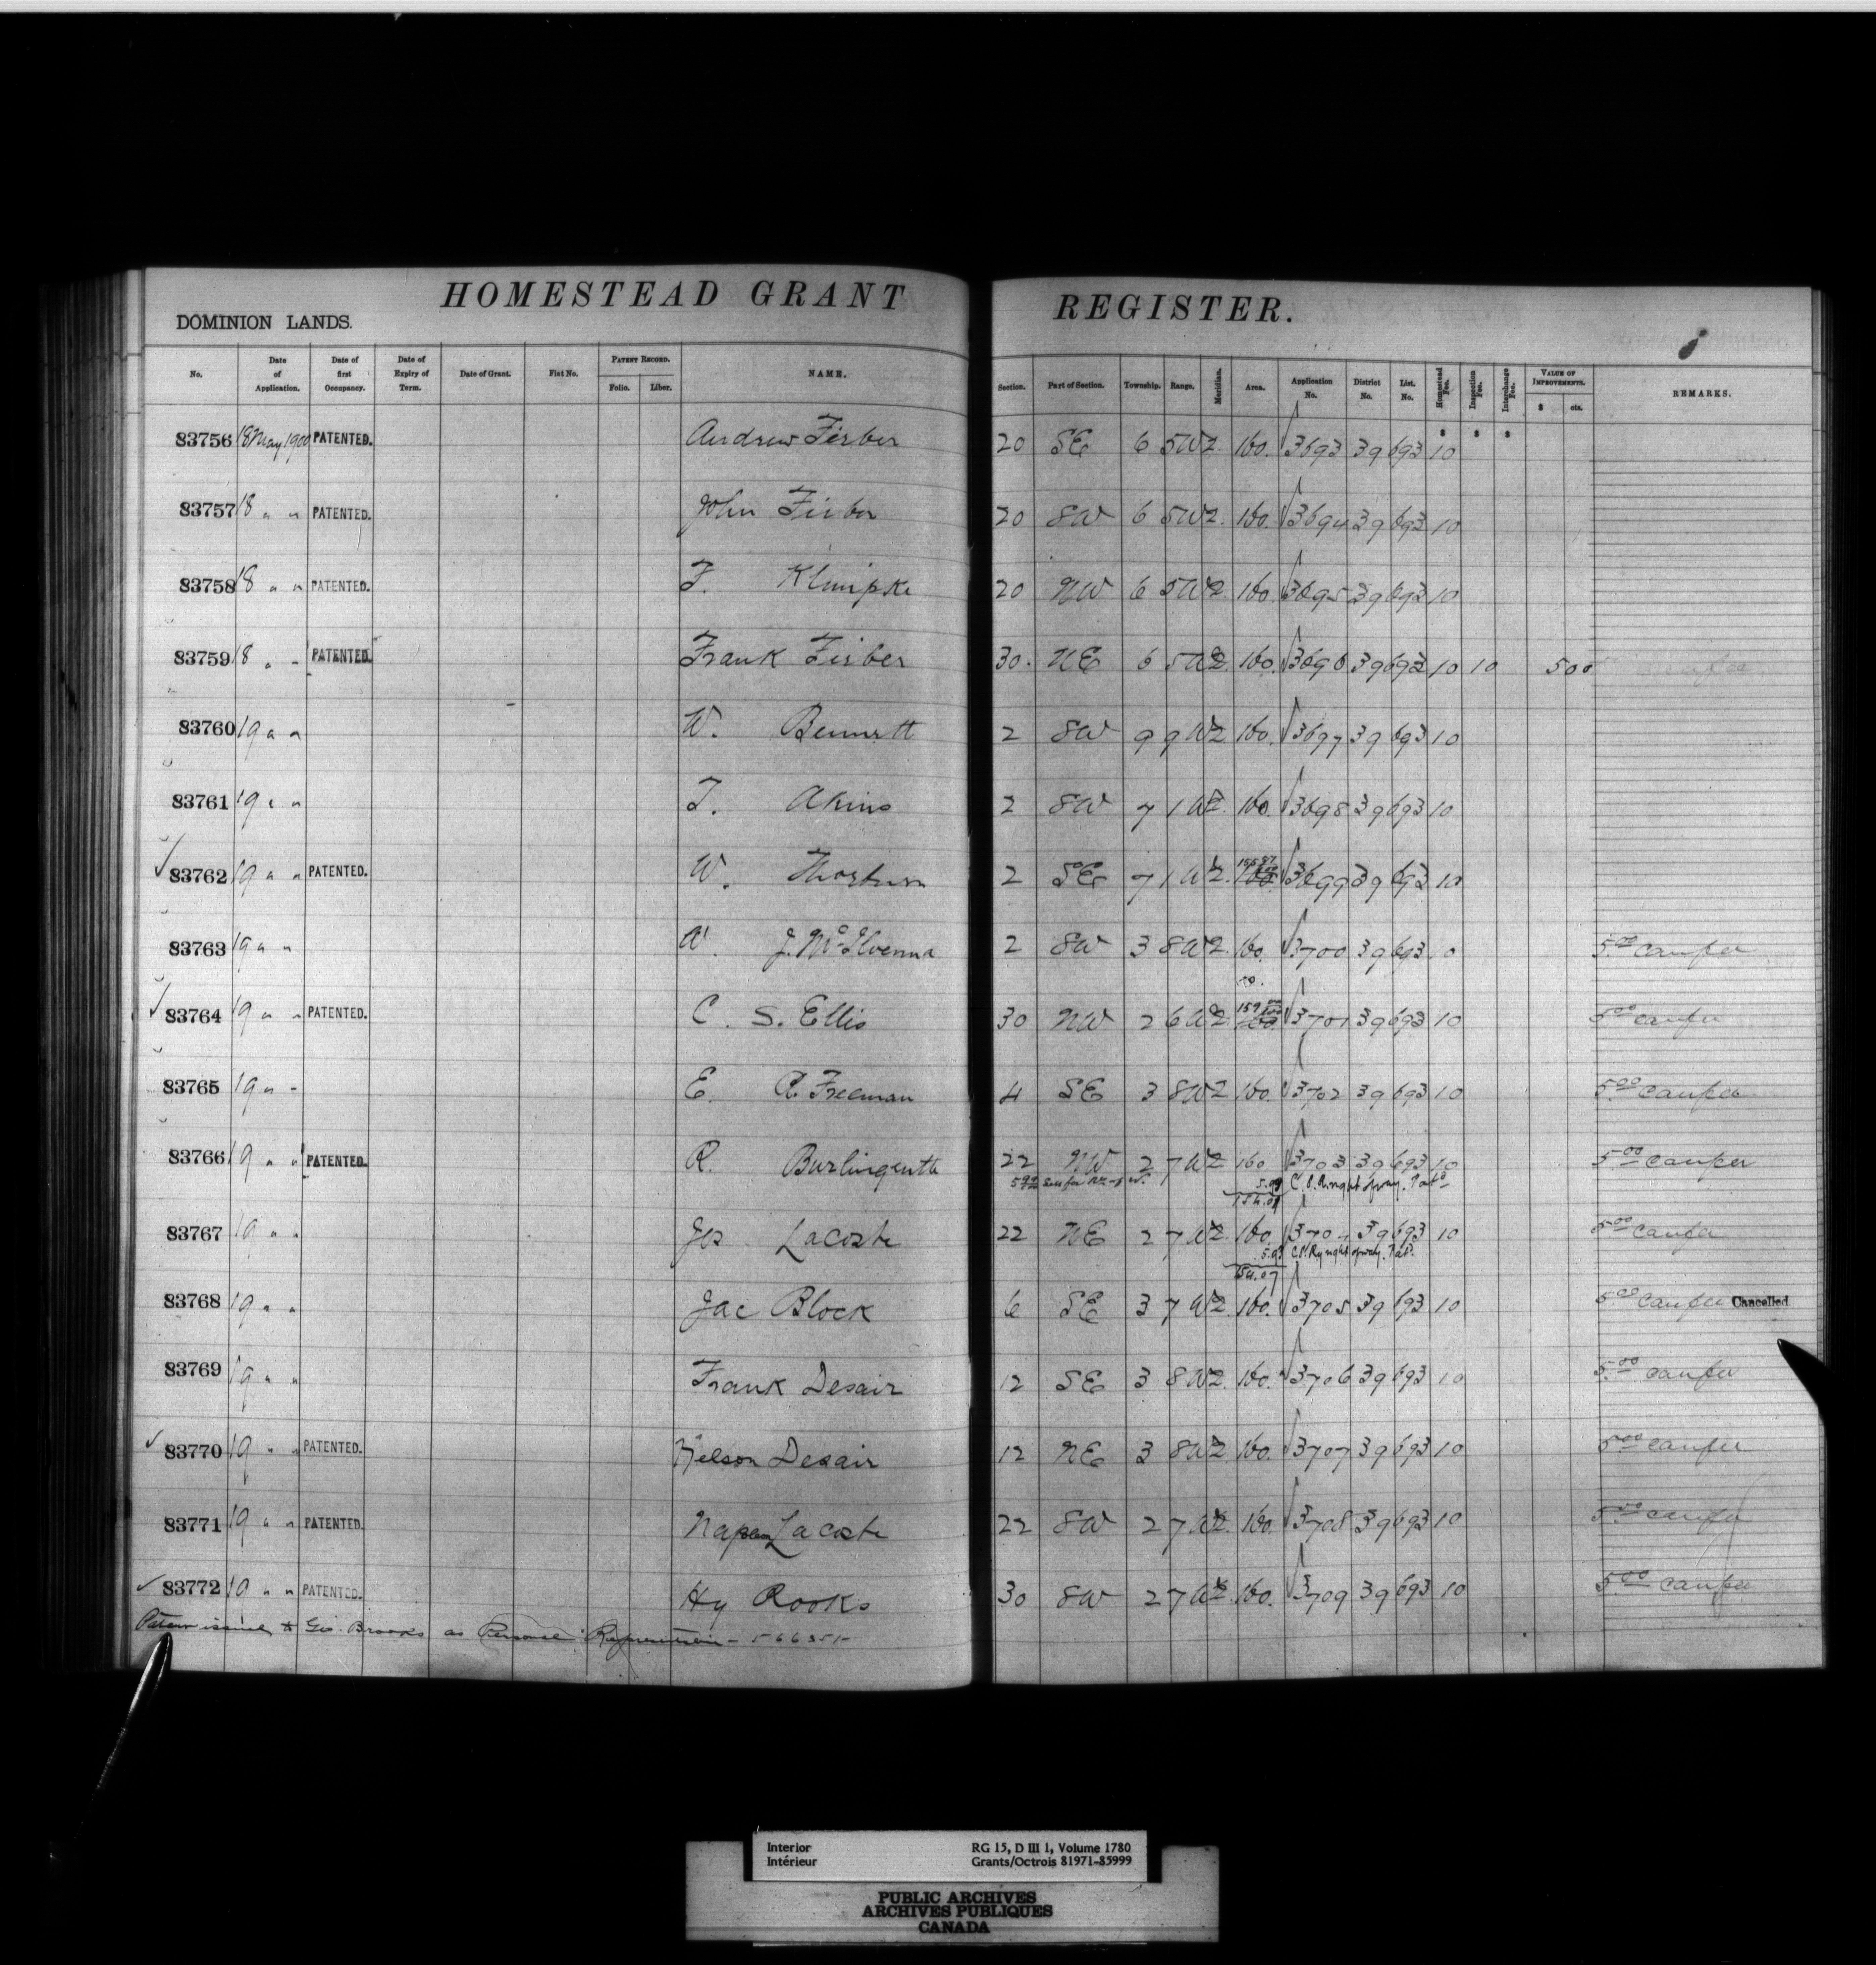 HOMESTEAD GRANT REGISTER.
DOMINION LANDS.
No. Date of Application. Date of first Occupancy. Date of Expiry of Term. Date of Grant. Fiat No. PATENT RECORD. Folio. Liber. NAME. Section. Part of Section. Township. Range. Meridian. Area. Application No. District No. List. No. Homestead Fee. Inspection Fee. Interchange Fee. VALUE OF IMPROVEMENTS. $ cts. REMARKS.
83756 18 May 1900 PATENTED. Andrew Firber 20 SE 6 5 W 2. 160. 3693 39 693 10
83757 18 " " PATENTED. John Firber 20 SW 6 5 W 2. 160. 3694 39 693 10
83758 18 " " PATENTED. F. Klimpke 20 NW 6 5 W 2. 160. 3695 39 693 10
83759 18 " " PATENTED. Frank Firber 30. NE 6 5 W 2. 160. 3696 39 693 10 10 500
83760 19 " " W. Bennett 2 SW 9 9 W 2. 160. 3697 39 693 10
83761 19 " " T. Akins 2 SW 7 1 W 2. 160. 3698 39 693 10
83762 19 " " PATENTED. W. Thorburn 2 SE 7 1 W 2. 3699 39 693 10
83763 19 " " J. McIlvenna 2 SW 3 8 W 2. 160. 3700 39 693 10 5.00
83764 19 " " PATENTED. C. S. Ellis 30 NW 2 6 W 2. 159 3701 39 693 10 5.00
83765 19 " " E. R. Freeman 4 SE 3 8 W 2 160. 3702 39 693 10 5.00
83766 19 " " PATENTED. R. Burlinguette 22 NW 2 7 W 2 160. 3703 39 693 10 5.00
C.P.R. right of way.
83767 19 " " Jos Lacoste 22 NE 2 7 W 2. 160. 3704 39 693 10 5.00
5.93 C.P. Ry right of way.
154.07
83768 19 " " Jac Block 6 SE 3 7 W 2. 160. 3705 39 693 10 5.00 Cancelled
83769 19 " " Frank Desair 12 SE 3 8 W 2. 160. 3706 39 693 10 5.00
83770 19 " " PATENTED. Nelson Desair 12 NE 3 8 W 2. 160. 3707 39 693 10 5.00
83771 19 " " PATENTED. Napoleon Lacoste 22 SW 2 7 W 2. 160. 3708 39 693 10 5.00
83772 19 " " PATENTED. Hy Rooks 30 SW 2 7 W 2. 160. 3709 39 693 10 5.00
Patent issued to Geo. Brooks as Personal Representative -
Interior RG 15, D III 1, Volume 1780
Intérieur Grants/Octrois 81971-85999
PUBLIC ARCHIVES
ARCHIVES PUBLIQUES
CANADA